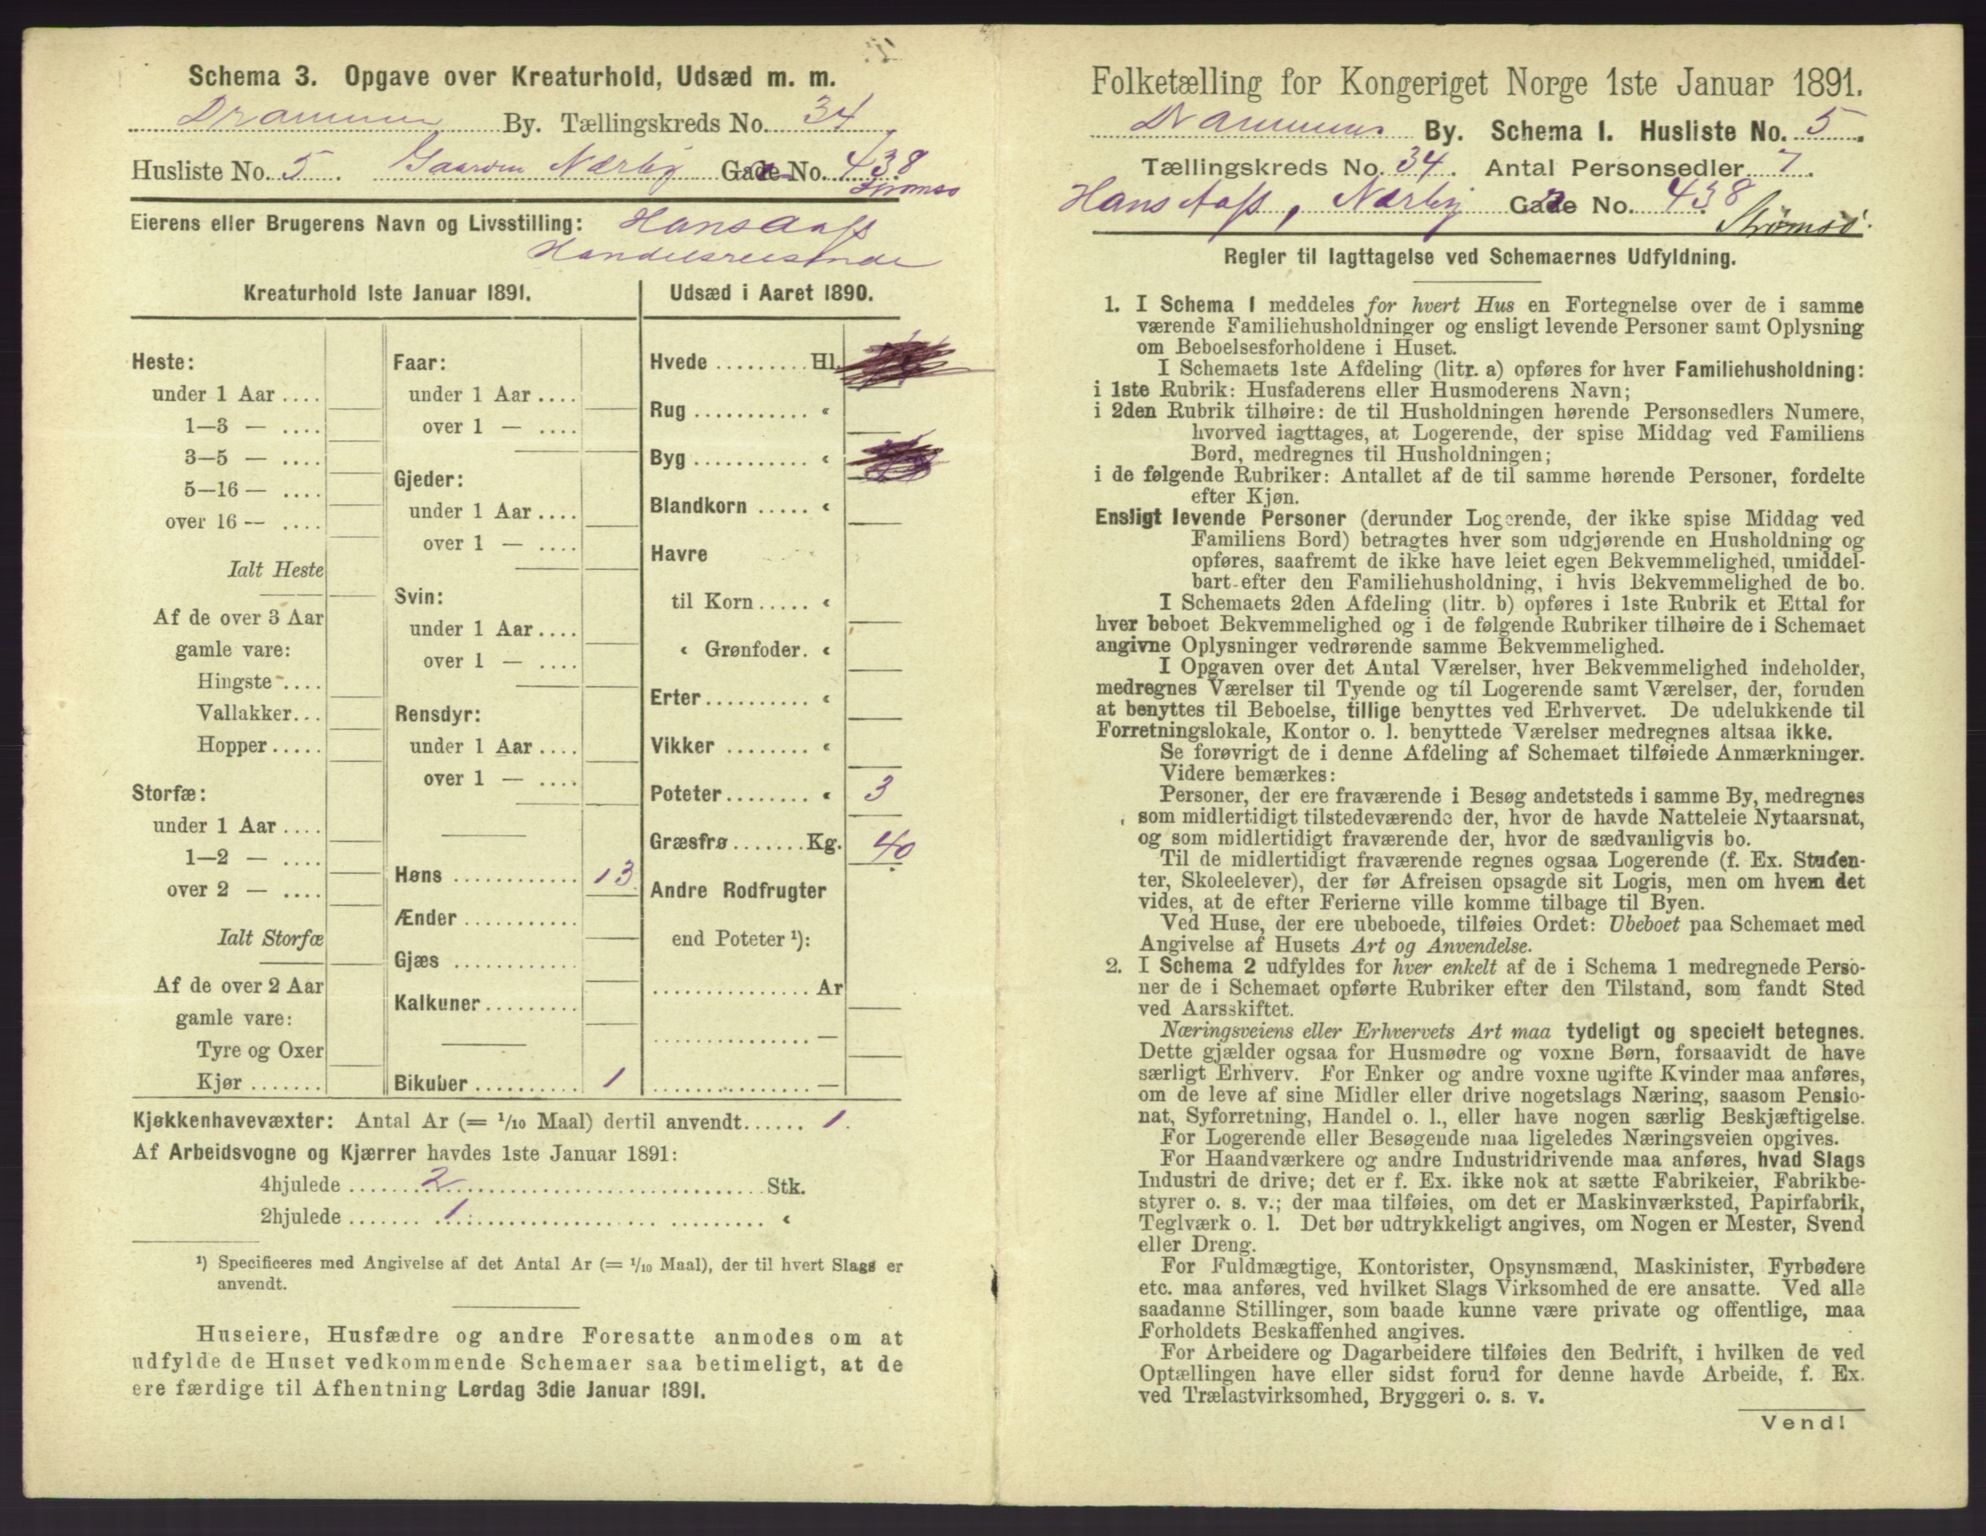 Schema 3. Opgave over Kreaturhold, Udsæd m. m.
Drammen By. Tællingskreds No. 34
Husliste No. 5. Gaarden Nærby Gade No. 438
Strømsø
Eierens eller Brugerens Navn og Livsstilling: Hans Aass
Handelsreisende
Kreaturhold 1ste Januar 1891.
Heste:
under 1 Aar ....
1—3 — ....
3—5 — ....
5—16 — ....
over 16 — ....
Ialt Heste
Af de over 3 Aar
gamle vare:
Hingste ....
Vallakker...
Hopper .....
Storfæ:
under 1 Aar ....
1—2 — ....
over 2 — ....
Ialt Storfæ
Af de over 2 Aar
gamle vare:
Tyre og Oxer
Kjør .......
Faar:
under 1 Aar ....
over 1 — ....
Gjeder:
under 1 Aar ....
over 1 — ....
Svin:
under 1 Aar ....
over 1 — ....
Rensdyr:
under 1 Aar ....
over 1 — ....
Høns ........... 13
Ænder ..........
Gjæs ...........
Kalkuner ........
Bikuber ......... 1
Udsæd i Aaret 1890.
Hvede ......... Hl.
Rug ........... «
Byg ........... «
Blandkorn ..... «
Havre
til Korn ..... «
« Grønfoder. «
Erter .......... «
Vikker ........ «
Poteter ........ « 3
Græsfrø ....... Kg. 40
Andre Rodfrugter
end Poteter ¹):
............... Ar
............... —
............... —
Kjøkkenhavevæxter: Antal Ar (= 1/10 Maal) dertil anvendt...... 1.
Af Arbeidsvogne og Kjærrer havdes 1ste Januar 1891:
4hjulede ....... 2 ............................ Stk.
2hjulede ....... 1 ............................ «
¹) Specificeres med Angivelse af det Antal Ar (= 1/10 Maal), der til hvert Slags er
anvendt.
Huseiere, Husfædre og andre Foresatte anmodes om at
udfylde de Huset vedkommende Schemaer saa betimeligt, at de
ere færdige til Afhentning Lørdag 3die Januar 1891.
Folketælling for Kongeriget Norge 1ste Januar 1891.
Drammens By. Schema 1. Husliste No. 5.
Tællingskreds No. 34. Antal Personsedler 7.
Hans Aass, Nærby Gade No. 438
Strømsø.
Regler til Iagttagelse ved Schemaernes Udfyldning.
1. I Schema 1 meddeles for hvert Hus en Fortegnelse over de i samme
værende Familiehusholdninger og ensligt levende Personer samt Oplysning
om Beboelsesforholdene i Huset.
I Schemaets 1ste Afdeling (litr. a) opføres for hver Familiehusholdning:
i 1ste Rubrik: Husfaderens eller Husmoderens Navn;
i 2den Rubrik tilhøire: de til Husholdningen hørende Personsedlers Numere,
hvorved iagttages, at Logerende, der spise Middag ved Familiens
Bord, medregnes til Husholdningen;
i de følgende Rubriker: Antallet af de til samme hørende Personer, fordelte
efter Kjøn.
Ensligt levende Personer (derunder Logerende, der ikke spise Middag ved
Familiens Bord) betragtes hver som udgjørende en Husholdning og
opføres, saafremt de ikke have leiet egen Bekvemmelighed, umiddel-
bart efter den Familiehusholdning, i hvis Bekvemmelighed de bo.
I Schemaets 2den Afdeling (litr. b) opføres i 1ste Rubrik et Ettal for
hver beboet Bekvemmelighed og i de følgende Rubriker tilhøire de i Schemaet
angivne Oplysninger vedrørende samme Bekvemmelighed.
I Opgaven over det Antal Værelser, hver Bekvemmelighed indeholder,
medregnes Værelser til Tyende og til Logerende samt Værelser, der, foruden
at benyttes til Beboelse, tillige benyttes ved Erhvervet. De udelukkende til
Forretningslokale, Kontor o. l. benyttede Værelser medregnes altsaa ikke.
Se forøvrigt de i denne Afdeling af Schemaet tilføiede Anmærkninger.
Videre bemærkes:
Personer, der ere fraværende i Besøg andetsteds i samme By, medregnes
som midlertidigt tilstedeværende der, hvor de havde Natteleie Nytaarsnat,
og som midlertidigt fraværende der, hvor de sædvanligvis bo.
Til de midlertidigt fraværende regnes ogsaa Logerende (f. Ex. Studen-
ter, Skoleelever), der før Afreisen opsagde sit Logis, men om hvem det
vides, at de efter Ferierne ville komme tilbage til Byen.
Ved Huse, der ere ubeboede, tilføies Ordet: Ubeboet paa Schemaet med
Angivelse af Husets Art og Anvendelse.
2. I Schema 2 udfyldes for hver enkelt af de i Schema 1 medregnede Perso-
ner de i Schemaet opførte Rubriker efter den Tilstand, som fandt Sted
ved Aarsskiftet.
Næringsveiens eller Erhvervets Art maa tydeligt og specielt betegnes.
Dette gjælder ogsaa for Husmødre og voxne Børn, forsaavidt de have
særligt Erhverv. For Enker og andre voxne ugifte Kvinder maa anføres,
om de leve af sine Midler eller drive nogetslags Næring, saasom Pensio-
nat, Syforretning, Handel o. l., eller have nogen særlig Beskjæftigelse.
For Logerende eller Besøgende maa ligeledes Næringsveien opgives.
For Haandværkere og andre Industridrivende maa anføres, hvad Slags
Industri de drive; det er f. Ex. ikke nok at sætte Fabrikeier, Fabrikbe-
styrer o. s. v.; der maa tilføies, om det er Maskinværksted, Papirfabrik,
Teglværk o. l. Det bør udtrykkeligt angives, om Nogen er Mester, Svend
eller Dreng.
For Fuldmægtige, Kontorister, Opsynsmænd, Maskinister, Fyrbødere
etc. maa anføres, ved hvilket Slags Virksomhed de ere ansatte. Ved alle
saadanne Stillinger, som baade kunne være private og offentlige, maa
Forholdets Beskaffenhed angives.
For Arbeidere og Dagarbeidere tilføies den Bedrift, i hvilken de ved
Optællingen have eller sidst forud for denne havde Arbeide, f. Ex.
ved Trælastvirksomhed, Bryggeri o. s. v.
Vend!